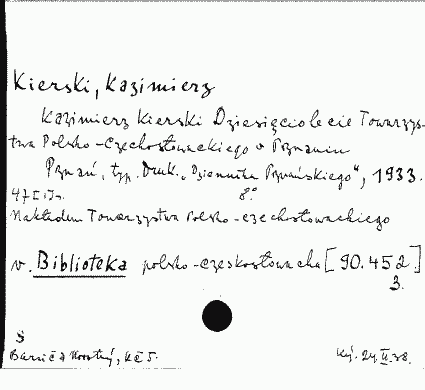 Kierski, Kazimierz
Kazimierz Kierski Dziesięciolecie Towarzys-
twa Polsko-Czechosłowackiego w Poznaniu
Poznań, typ. Druk. „Dziennika Poznańskiego“, 1933.
8°
Nakładem Towarzystwa Polsko-czechosłowackiego
v. Biblioteka polsko-czeskosłowacka [90.452]
3.
Š
Kč 5.
24 II 38.